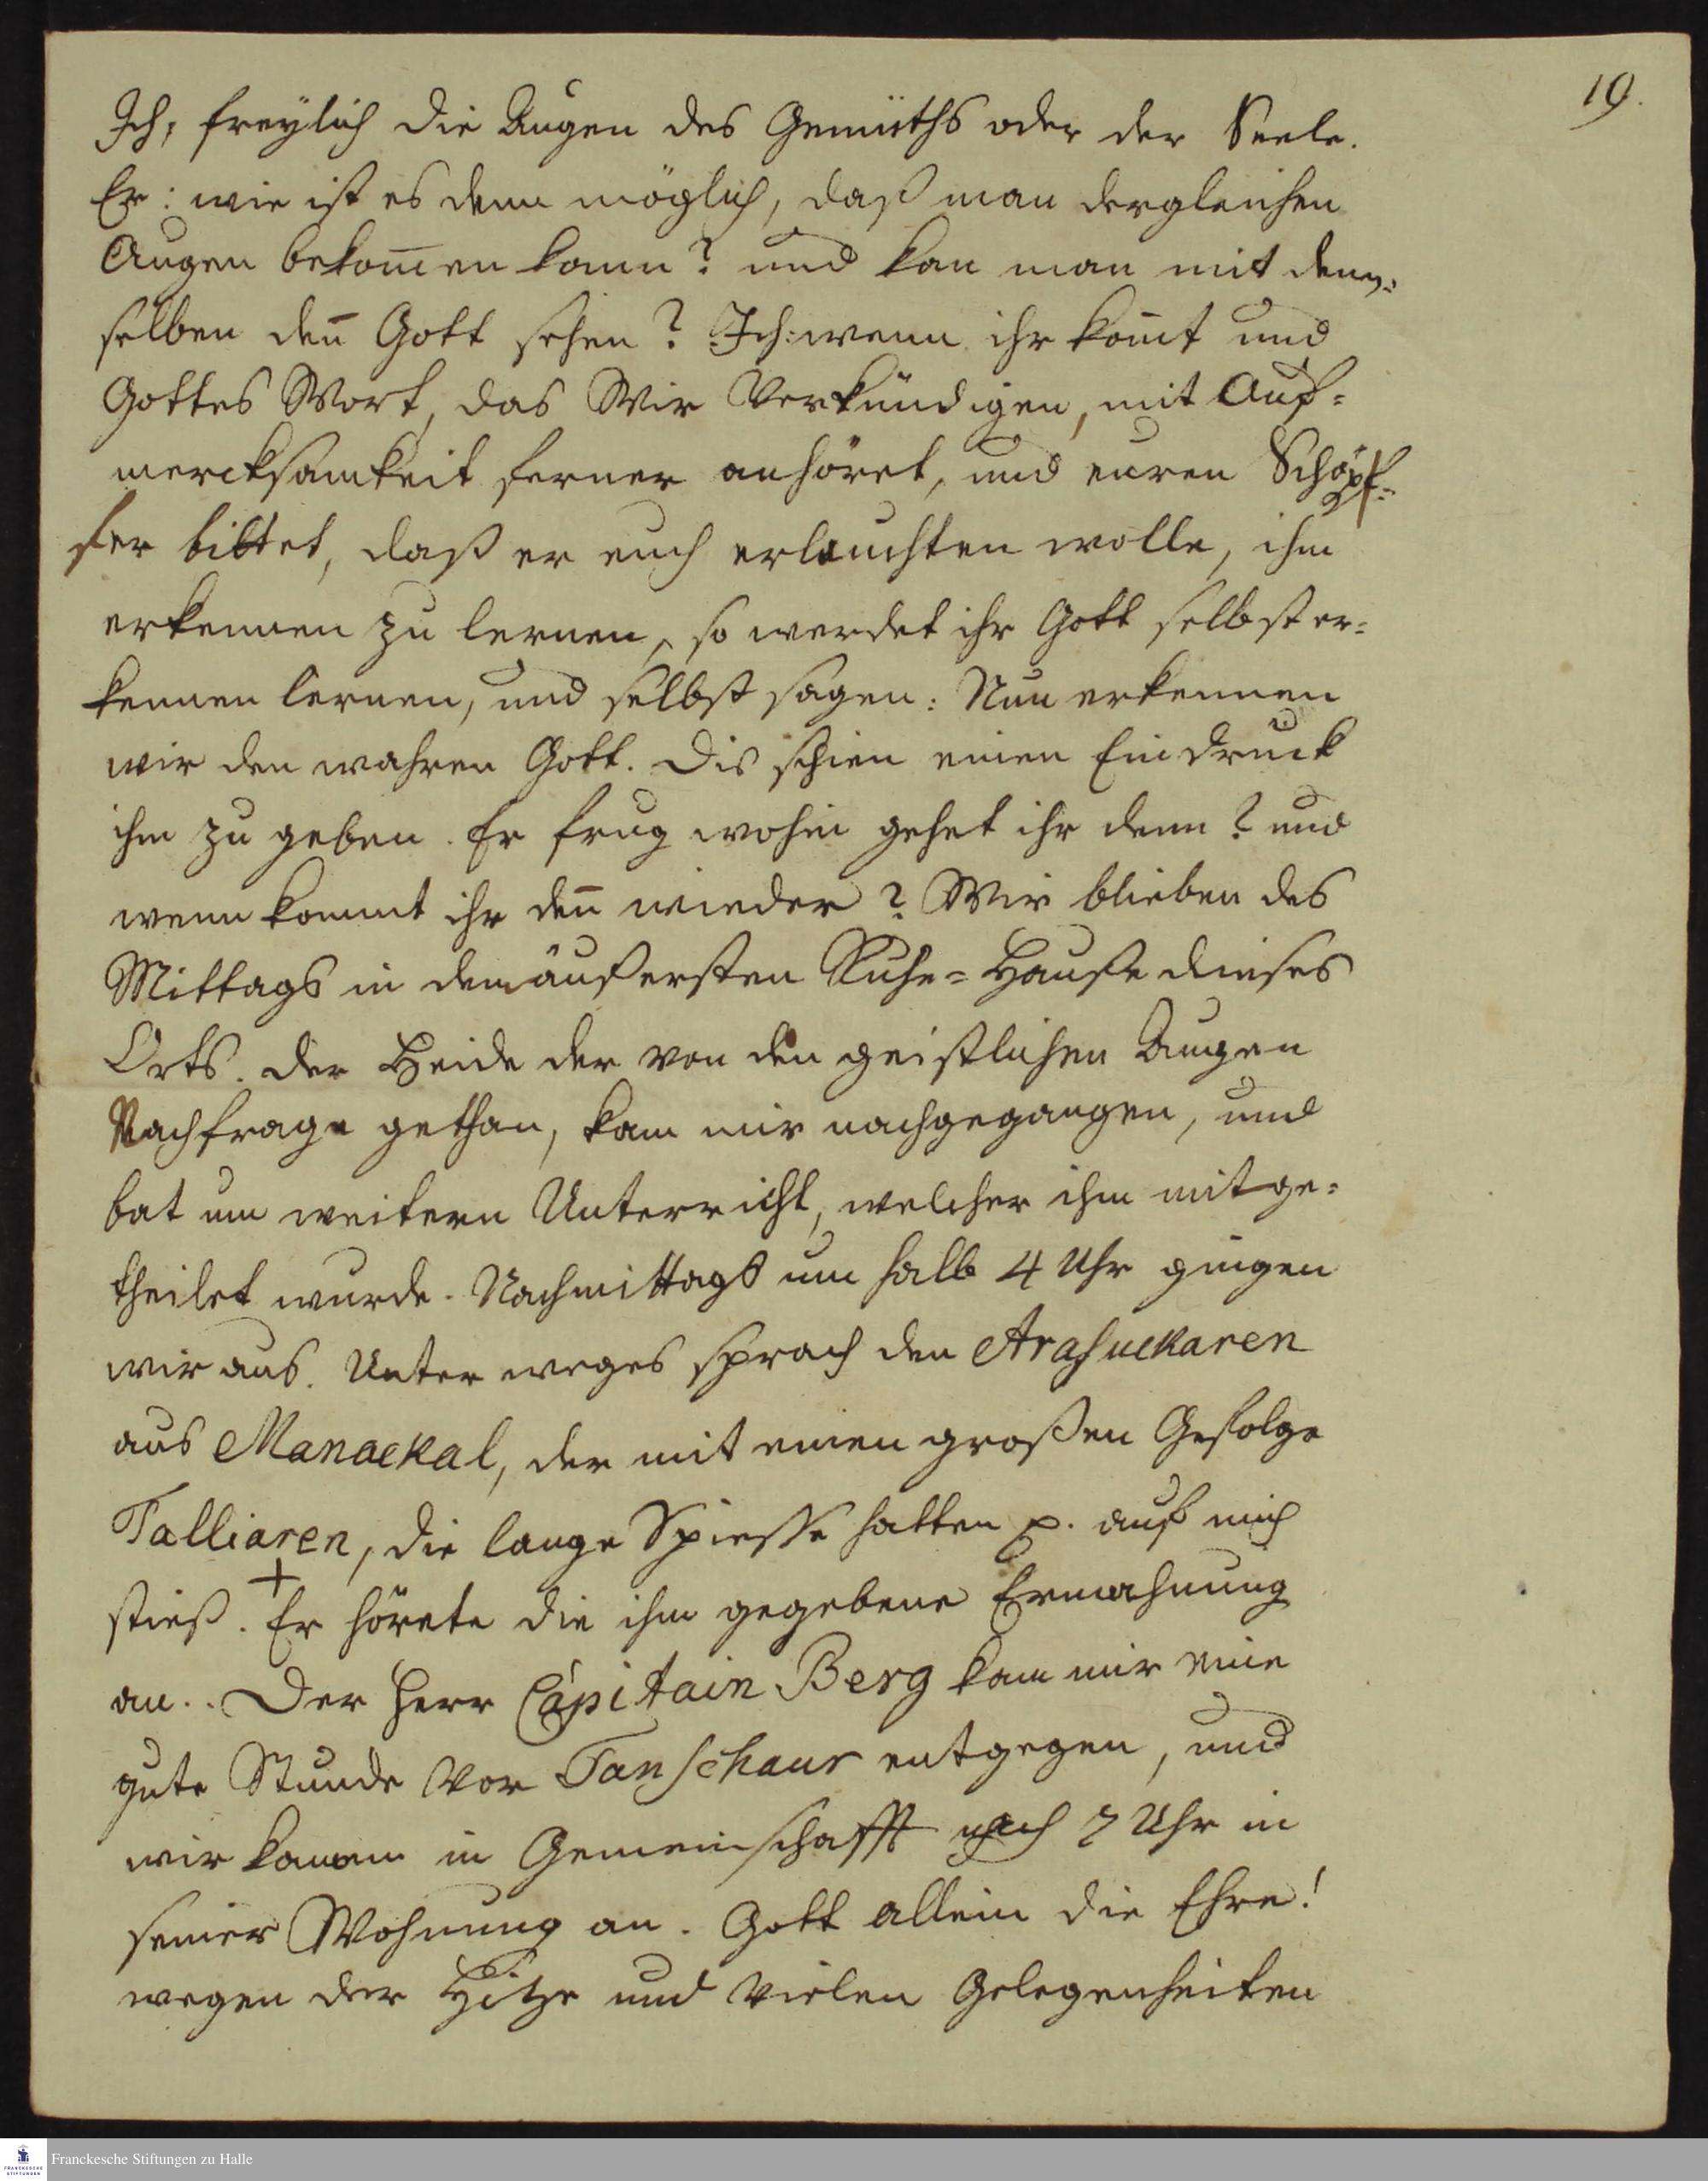 19.
Ich, freylich die Augen des Gemüths oder der Seele.
Er: wie ist es denn möglich, daß man dergleichen
Augen bekom̅en kann? und kan man mit den-
selben den̅ Gott sehen? Ich: wenn ihr kom̅t und
Gottes Wort, das Wir Verkündigen, mit Auf-
mercksamkeit ferner anhöret, und euren Schöpf-
fer bittet, daß er euch erleuchten wolle, ihn
erkennen zu lernen, so werdet ihr Gott selbst er-
kennen lernen, und selbst sagen: Nun erkennen
wir den wahren Gott. Dis schien einen Eindruck
ihm zu geben. Er frug wohin gehet ihr denn? und
wenn kommt ihr den̅ wieder? Wir blieben des
Mittags in dem äußersten Ruhe-Hause dieses
Orts. Der Heide der von den geistlichen Augen
Nachfrage gethan, kam mir nachgegangen, und
bat um weitern Unterricht, welcher ihm mitge-
theilet wurde. Nachmittags um halb 4 Uhr gingen
wir aus. Unter weges sprach den Arasuckaren
aus Manackal, der mit einen großen Gefolge
Talliaren, die lange Spiesse hatten p. auf mich
stieß. + Er hörete die ihm gegebene Ermahnung
an. Der Herr Capitain Berg kam mir eine
gute Stunde vor Tanschaur entgegen, und
wir kamen in Gemeinschafft nach 7 Uhr in
seiner Wohnung an. Gott allein die Ehre!
wegen der Hitze und vielen Gelegenheiten
FRANCKESCHE STIFTUNGEN
Franckesche Stiftungen zu Halle